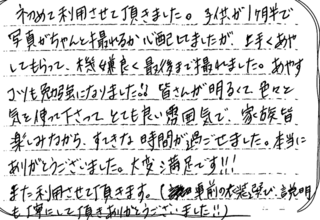 初めて利用させて頂きました。子供が1ヶ月半で
写真がちゃんと撮れるか心配してましたが、上手くあや
してもらって、機嫌良く最後まで撮れました。あやす
コツも勉強になりました!! 皆さんが明るくて色々と
気を使って下さって、とても良い雰囲気で、家族皆
楽しみながら、すてきな時間が過ごせました。本当に
ありがとうございました。大変満足です!!!
また利用させて頂きます。(事前の衣装選び、説明
も丁寧にして頂きありがとうございました!!)